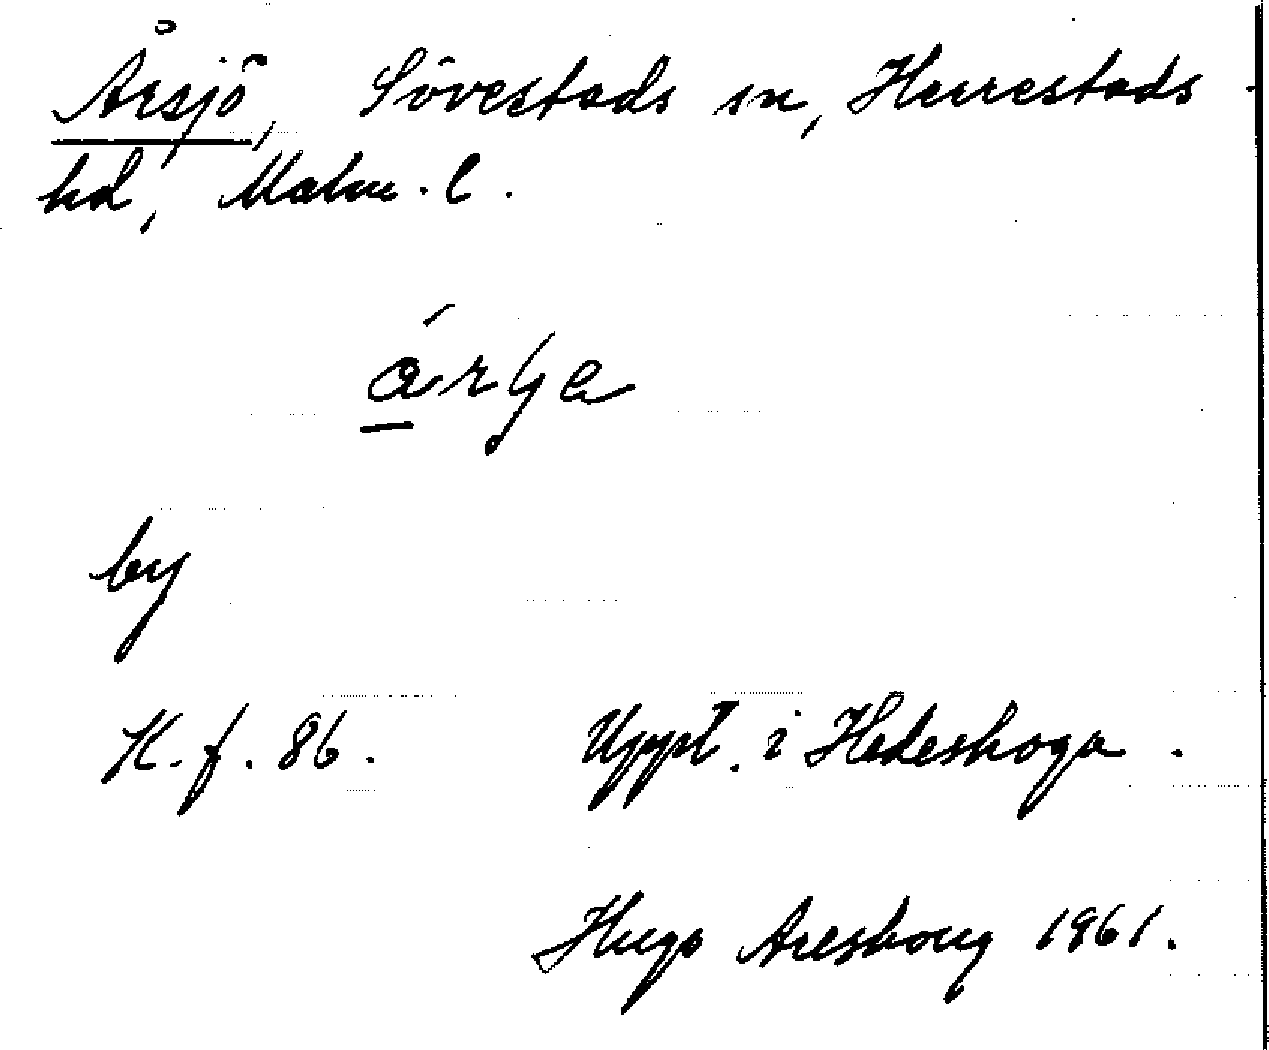 Årsjö, Sövestads sn, Herrestads
hd, Malm. l.
by
K. f. 86. Uppt. i Hedeskoga.
Hugo Areskoug 1961.